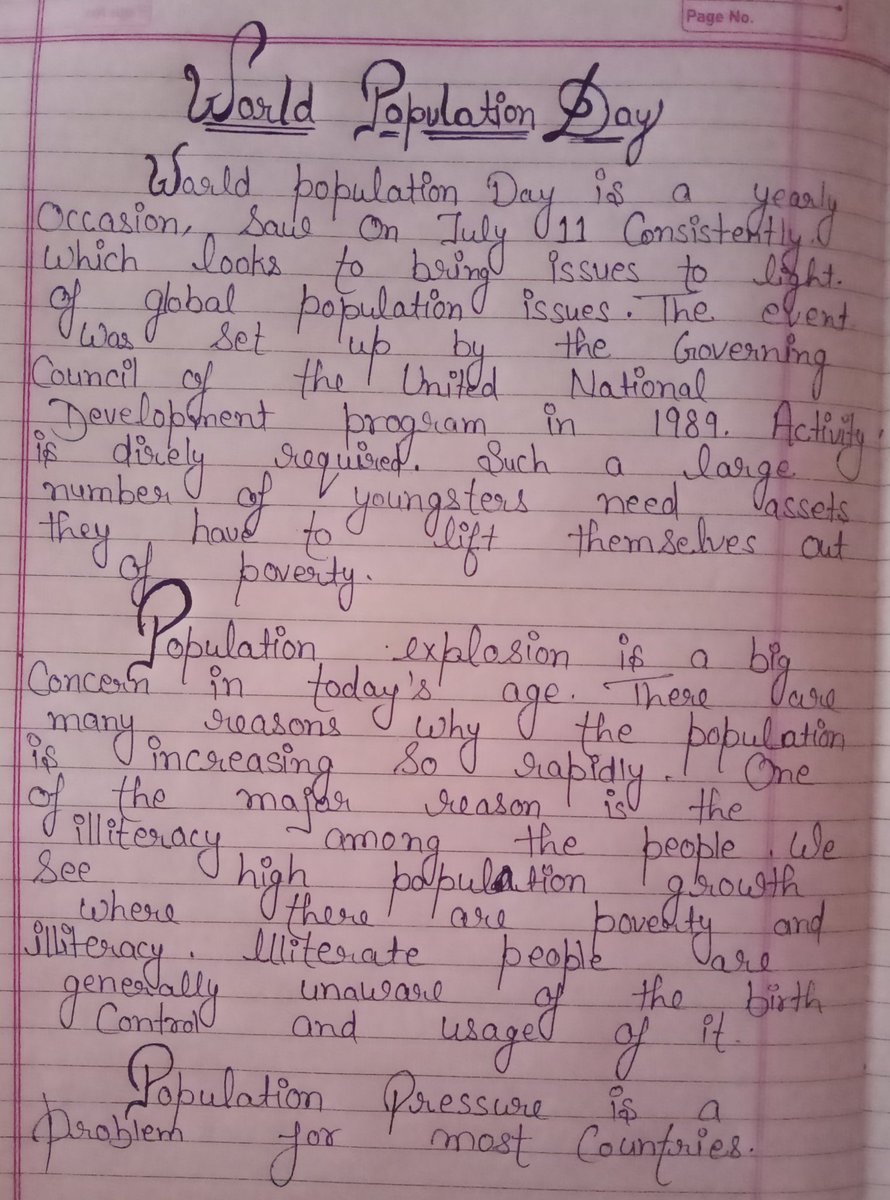 Page No.
World Population Day
World population Day is a yearly
Occasion, Save on July 11 Consistently.
Which looks to bring issues to light.
of global population issues. The event
Was set up by the Governing
Council of the United National
Development program in 1989. Activity
is direly required. Such a large
number of youngsters need assets
they have to lift themselves out
of poverty.
Population explosion is a big
Concern in today's age. There are
many reasons why the population
is increasing so rapidly. One
of the major reason is the
illiteracy among the people. We
See high population growth
where there are poverty and
illiteracy. Illiterate people are
generally unaware of the birth
Control and usage of it.
Population Pressure is a
Problem for most Countries.